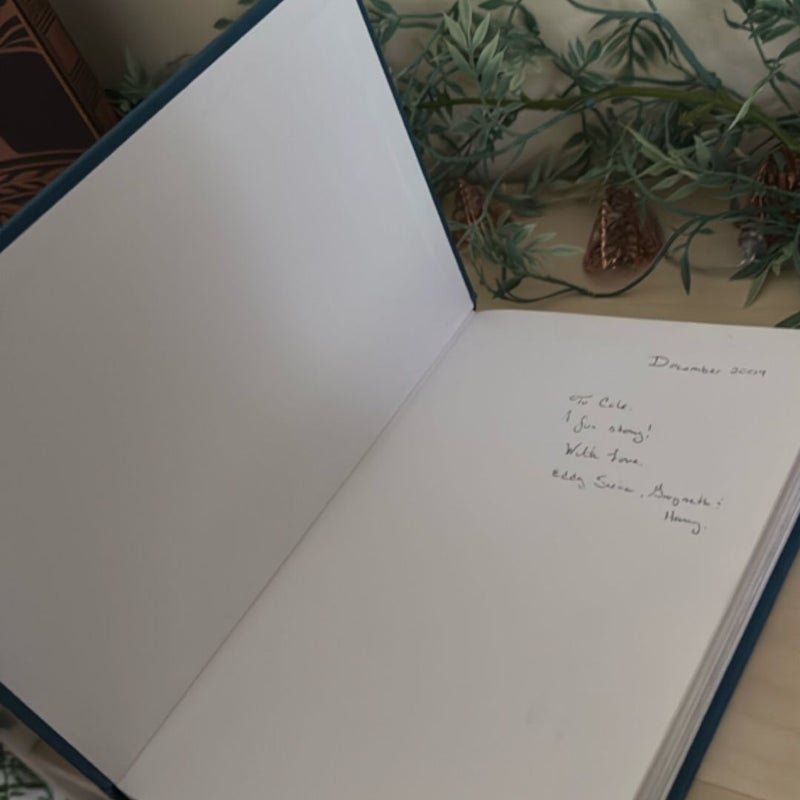 December 2009
To Cole.
A fun story!
With Love.
Eddy , Gwyneth &
Henry.